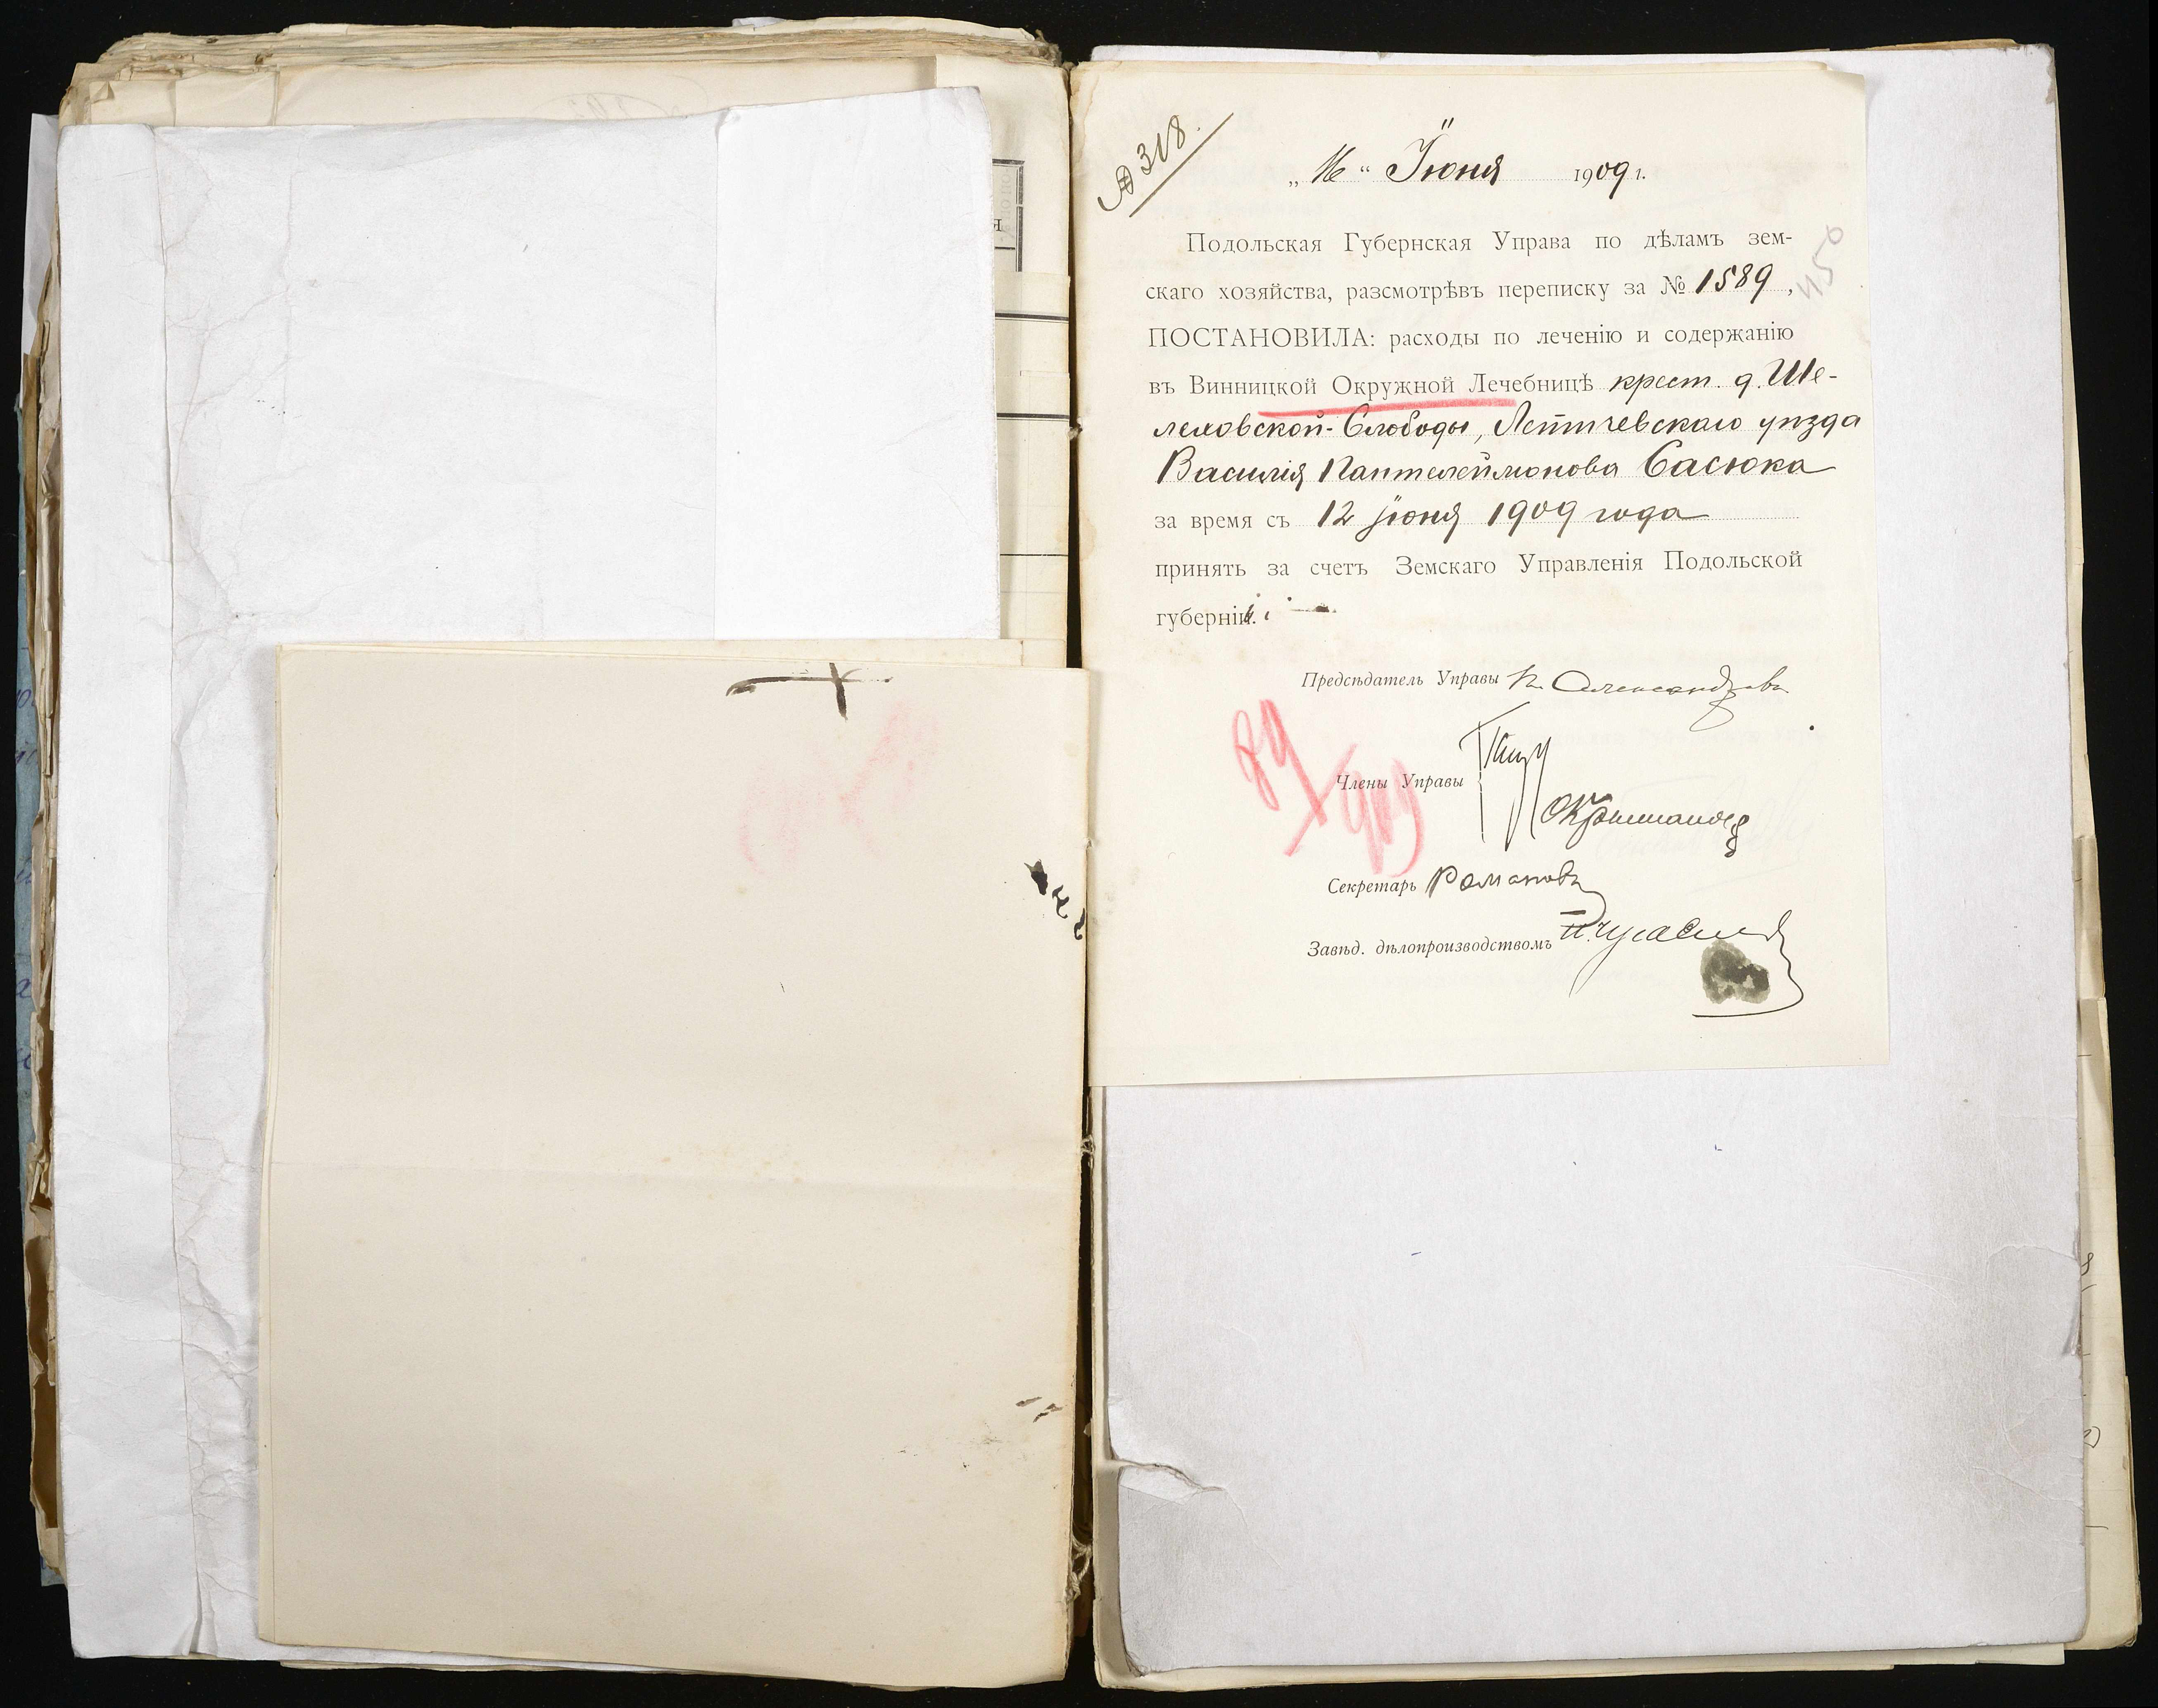 № 318.
„16“ Іюня 1909 г.
Подольская Губернская Управа по дѣламъ зем-
скаго хозяйства, разсмотрѣвъ переписку за № 1589,
450
ПОСТАНОВИЛА: расходы по леченію и содержанію
въ Винницкой Окружной Лечебницѣ крест. д. Ше-
леховской-Слободы, Летичевскаго уѣзда
Василія Пантелеймонова Сасюка
за время съ 12 іюня 1909 года
принять за счетъ Земскаго Управленія Подольской
губерніи.
Предсѣдатель Управы П. Александровъ
Члены Управы
Секретарь Романовъ
Завѣд. дѣлопроизводствомъ